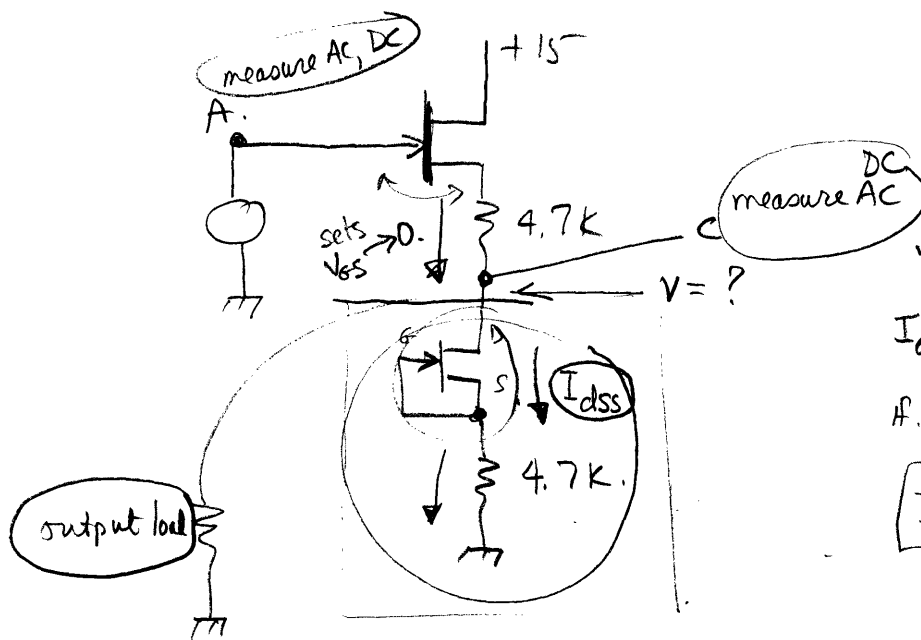 measure AC, DC
A.
+15
4.7K
sets
VGS → 0.
C
DC
measure AC
V = ?
G
D
S
Idss
4.7K.
output load